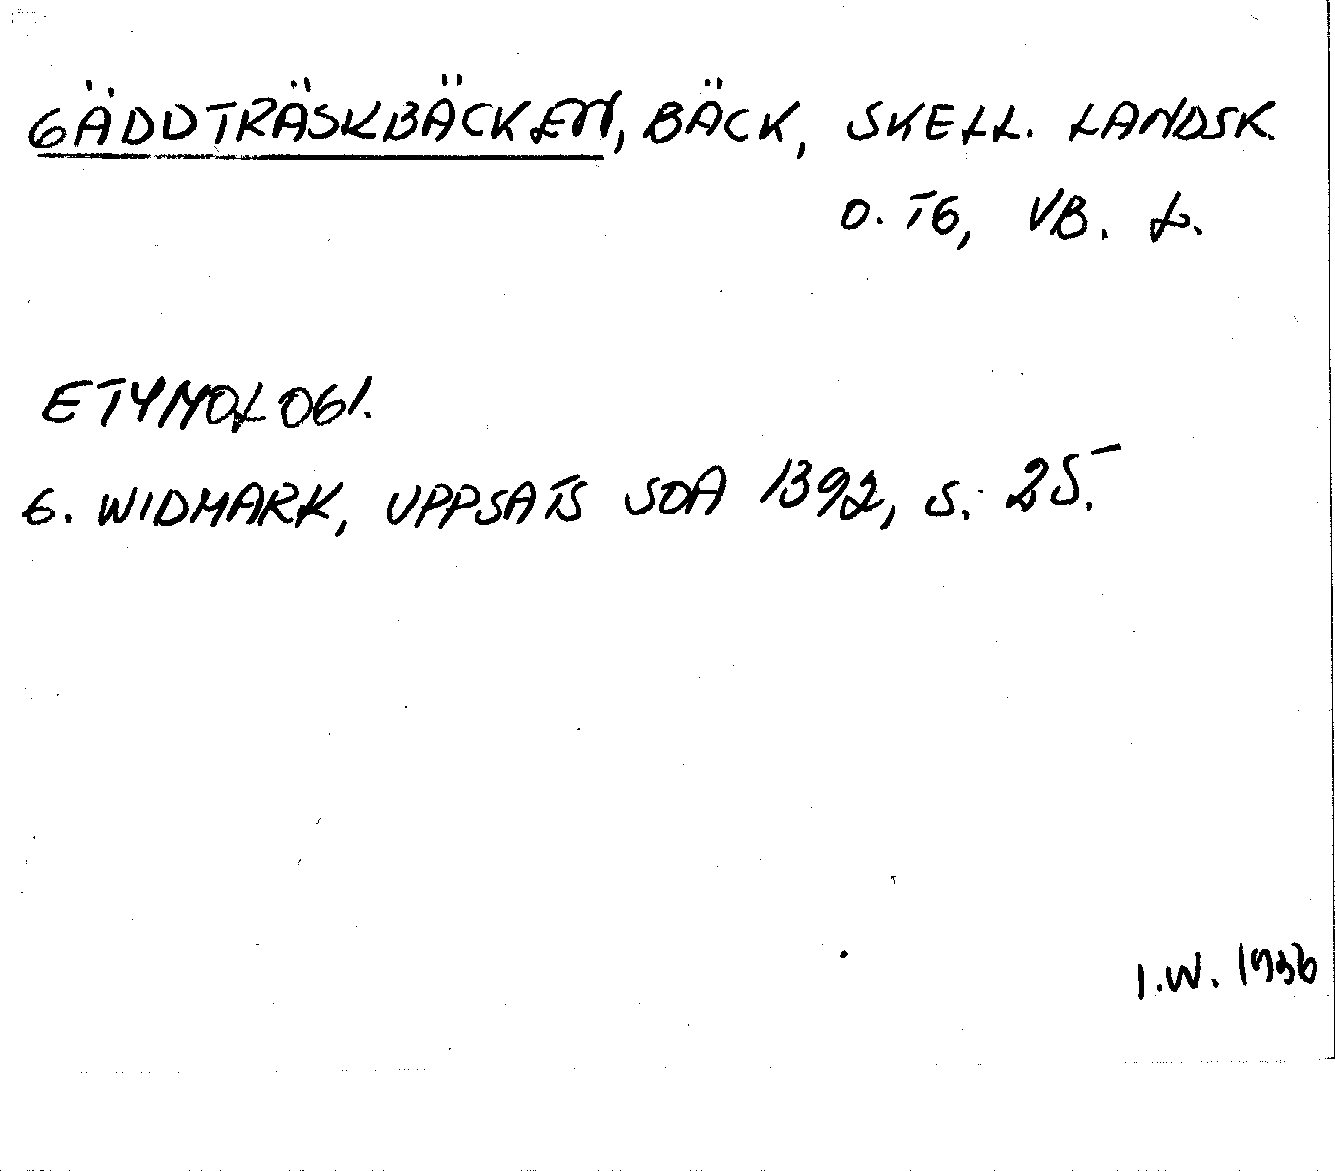 GÄDDTRÄSKBÄCKEN, BÄCK, SKELL. LANDSK
O. TG, VB. L.
ETYMOLOGI.
G. WIDMARK, UPPSATS SOA 1392, S. 25.
I.W.